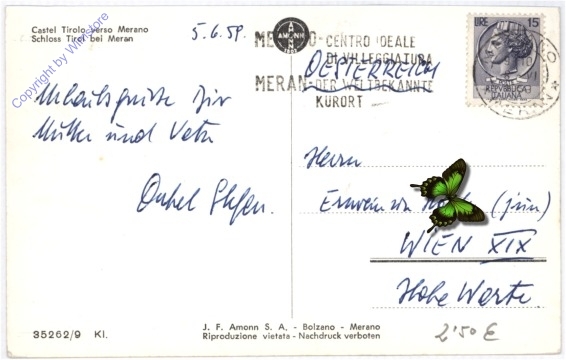 Castel Tirolo verso Merano
Schloss Tirol bei Meran
Copyright by Whitestore
5.6.59.
AMONN
MERANO-CENTRO IDEALE
DI VILLEGGIATURA
MERAN-DER WELTBEKANNTE
KURORT
OESTERREICH
LIRE 15
REPVBBLICA
ITALIANA
Urlaubsgrüsse Dir
Mutter und Vater
Onkel Stefan.
Herrn
(jun)
WIEN XIX
Hohe Warte.
35262/9 Kl.
J. F. Amonn S. A. - Bolzano - Merano
Riproduzione vietata - Nachdruck verboten
2'50 €